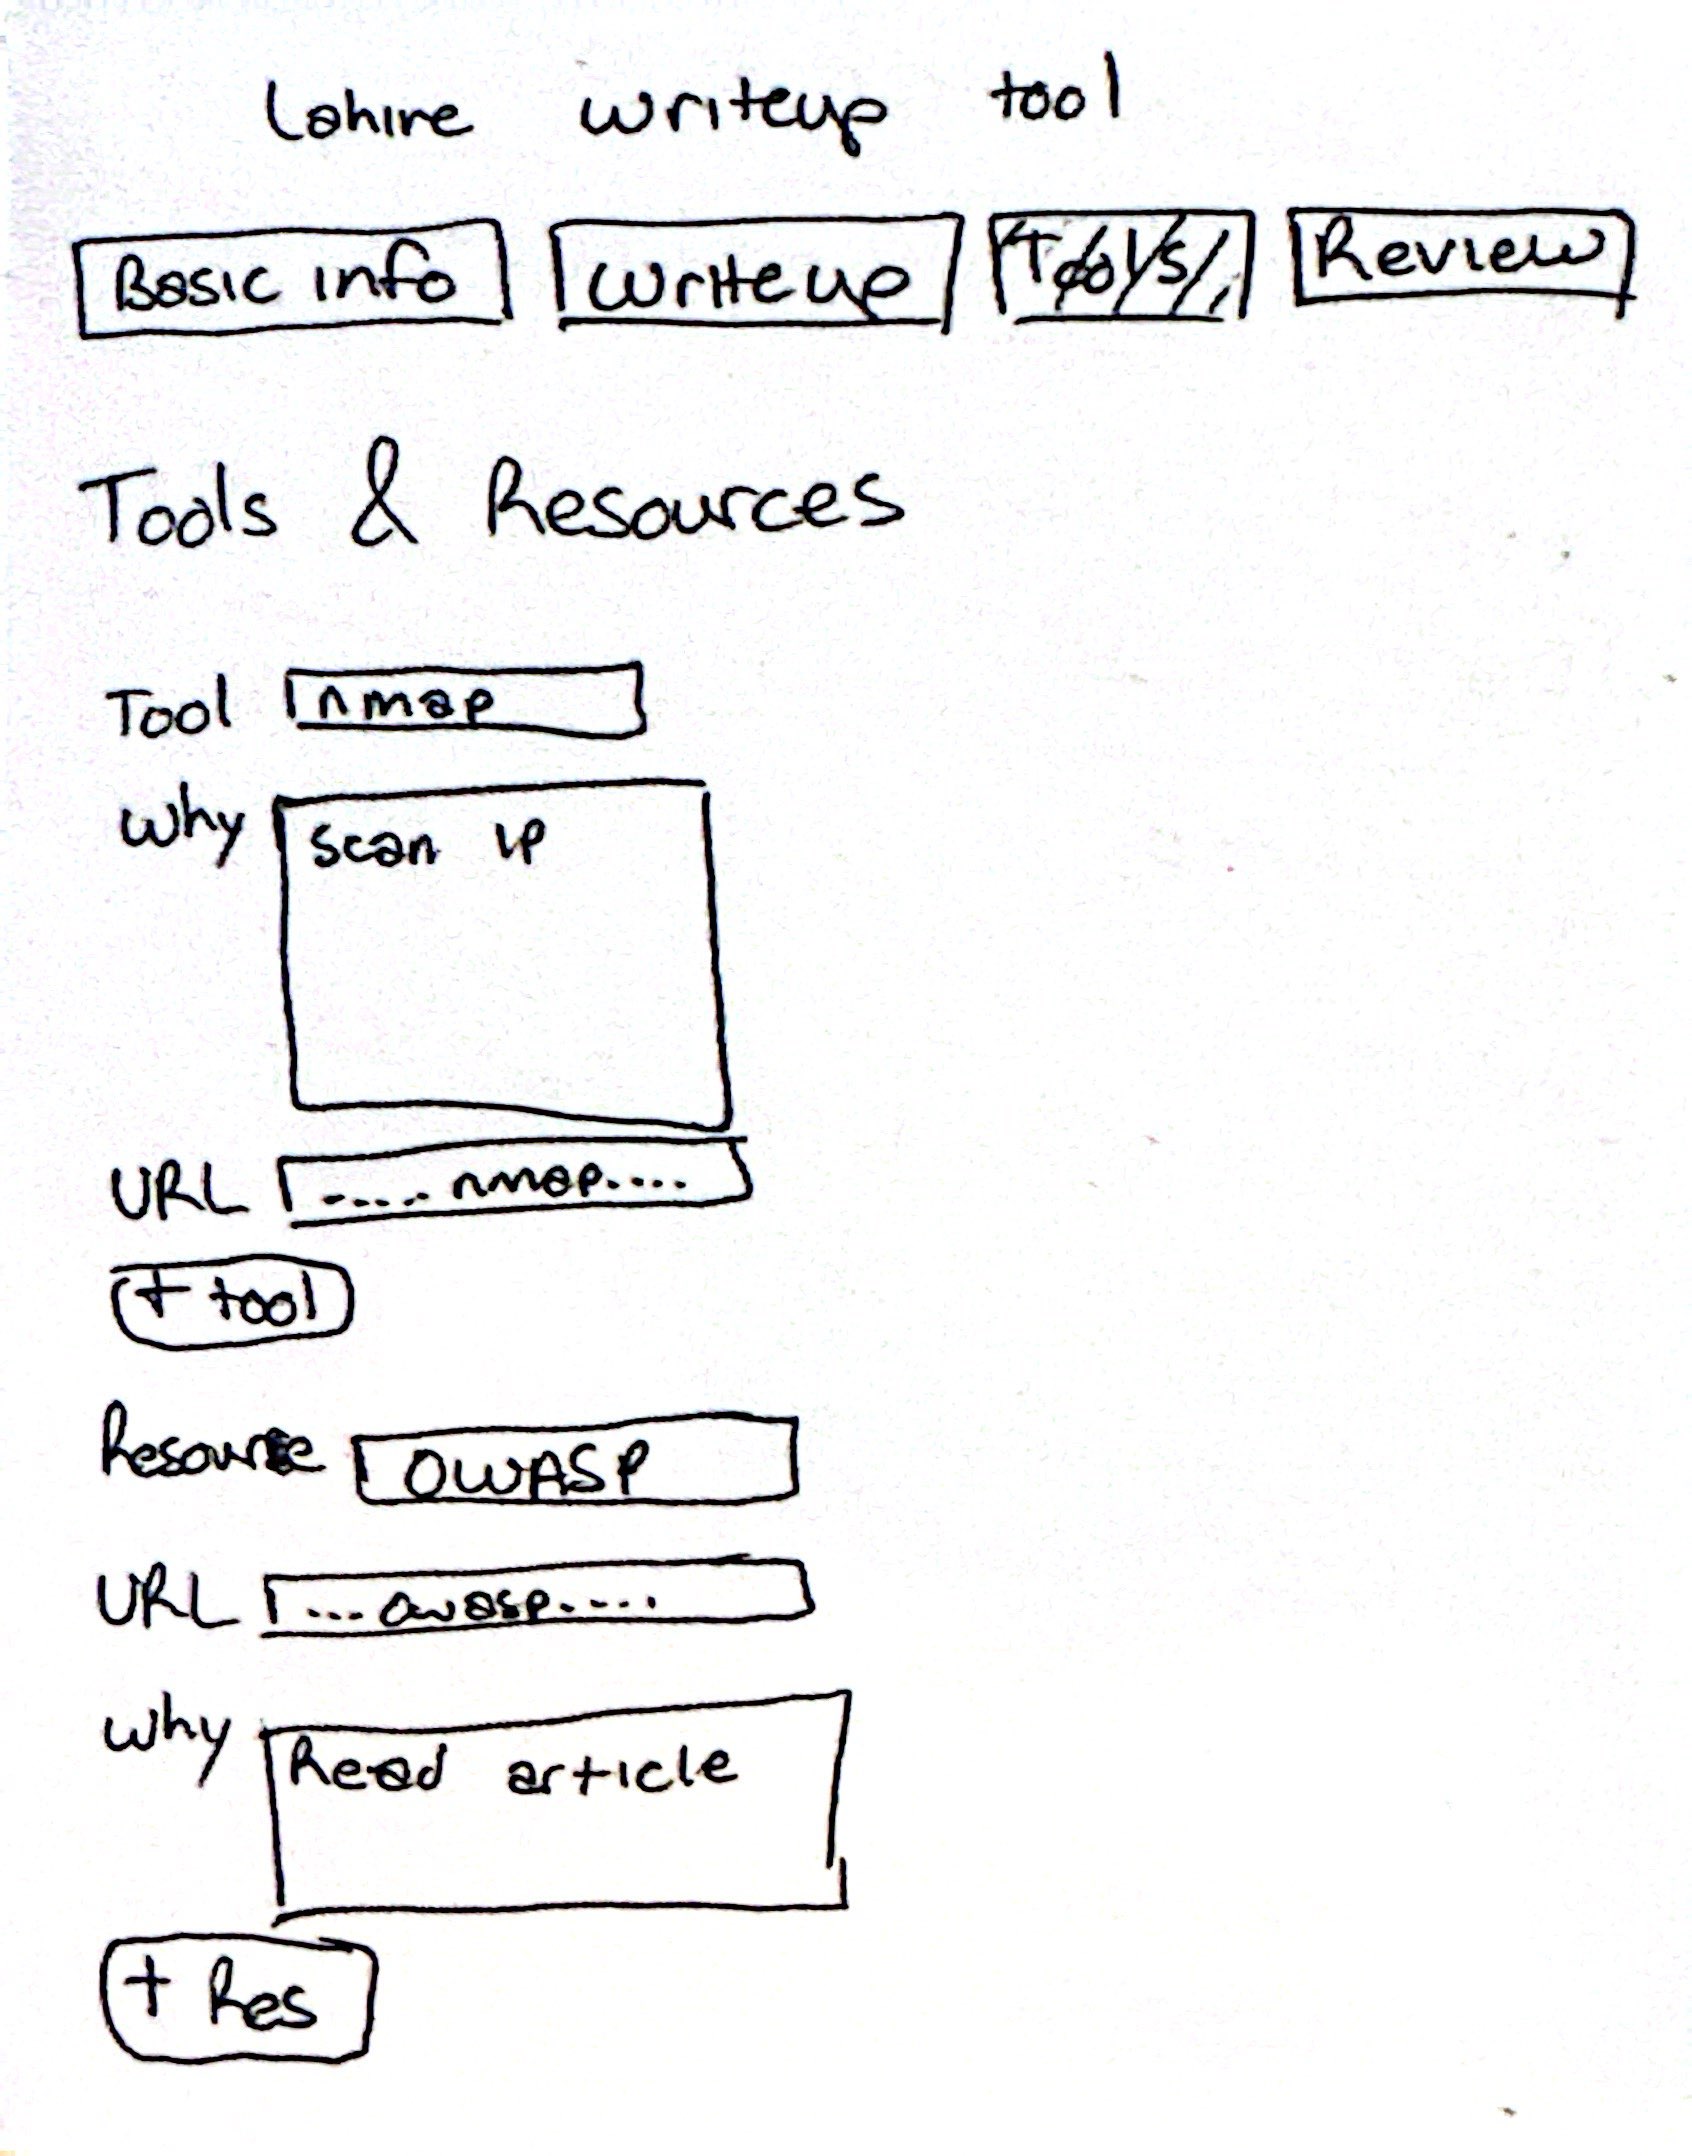 Lahire writeup tool
Basic info writeup Tools Review
Tools & Resources
Tool nmap
why scan ip
URL ..... nmap....
+ tool
Resource OWASP
URL ... owasp.....
why Read article
+ Res